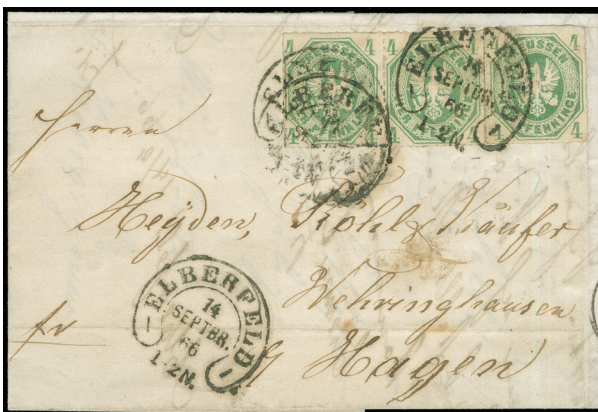 4 PREUSSEN 4 4 4 PREUSSEN 4
PFENNINGE 4
ELBERFELD
14
SEPTBR.
66
1-2N.
Herren
Heyden, Kohl & Käufer
Wehringhausen
fr
b/ Hagen
ELBERFELD
14
SEPTBR.
66
1-2N.